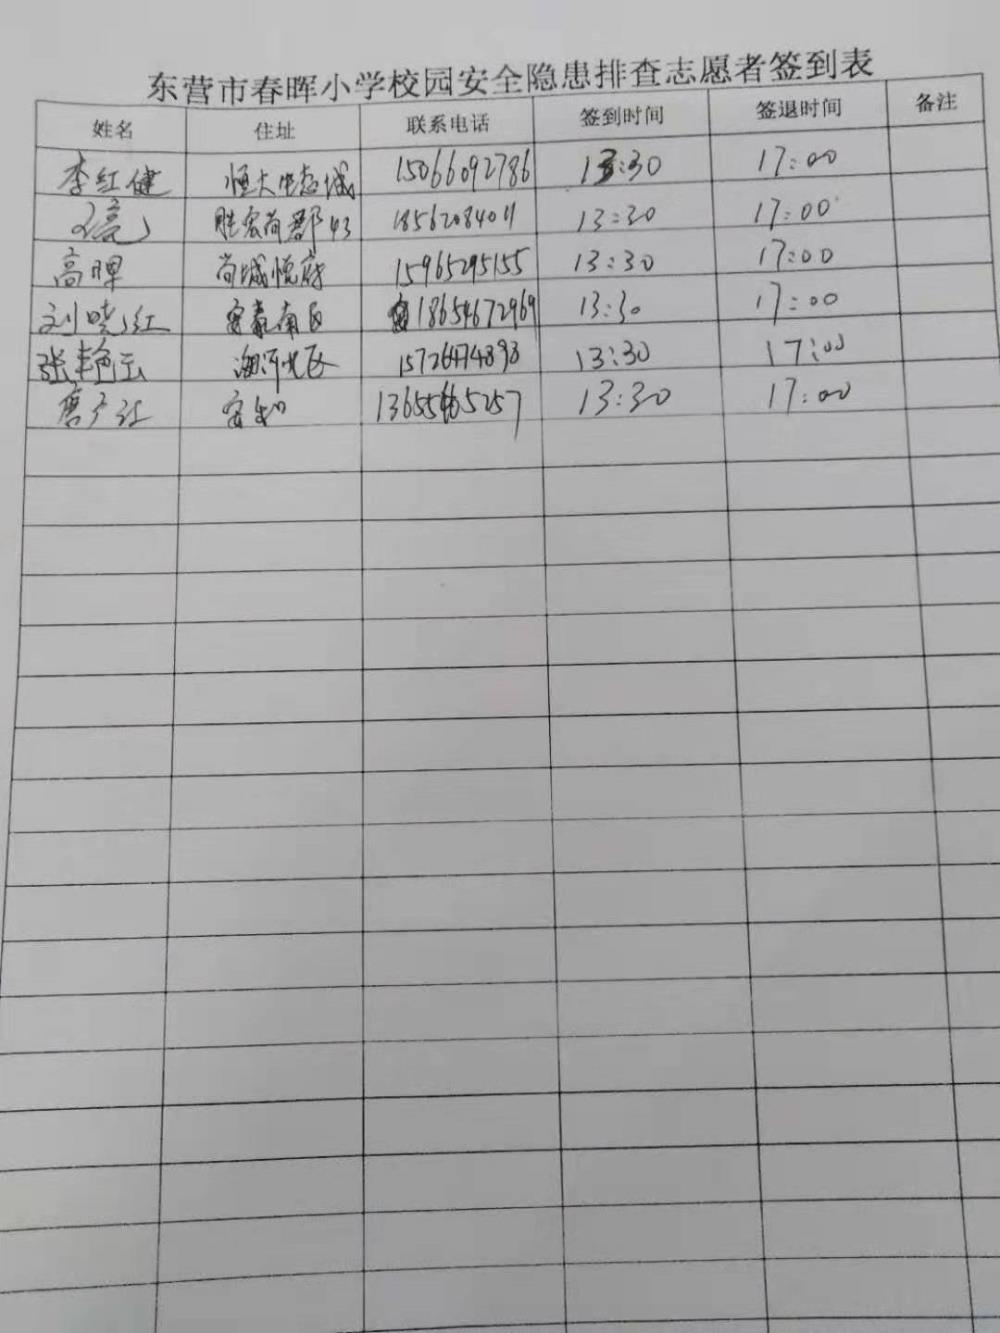 东营市春晖小学校园安全隐患排查志愿者签到表
姓名 住址 联系电话 签到时间 签退时间 备注
李红健 恒大生态城 15066092786 13:30 17:00
亮 胜宏尚郡43 13:30 17:00
高 尚城悦府 15965295155 13:30 17:00
刘晓红 安泰南区 18654672969 13:30 17:00
张艳云 海河北区 15726474898 13:30 17:00
唐 安 13:30 17:00